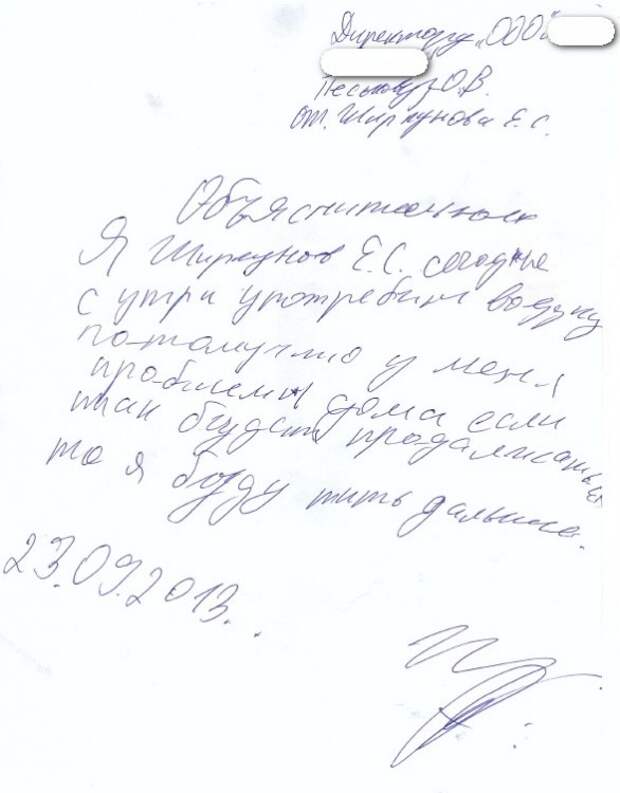 Директору „ООО"
Песькову О.В.
от Ширкунова Е.С.
Объяснительная
Я Ширкунов Е.С. сегодне
с утри употребил водку
потомучто у меня
проблемы дома если
так будет продалжаться
то я боду пить дальше.
23.09.2013.